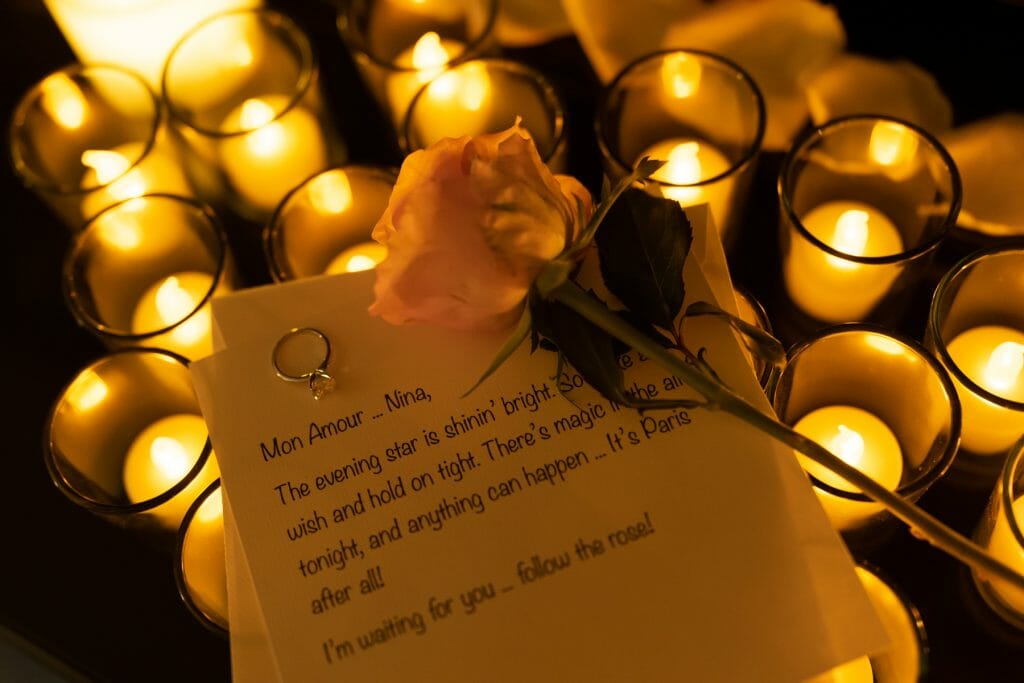 Mon Amour ... Nina,
The evening star is shinin' bright. So
wish and hold on tight. There's magic in the air
tonight, and anything can happen ... It's Paris
after all!
I'm waiting for you ... follow the rose!